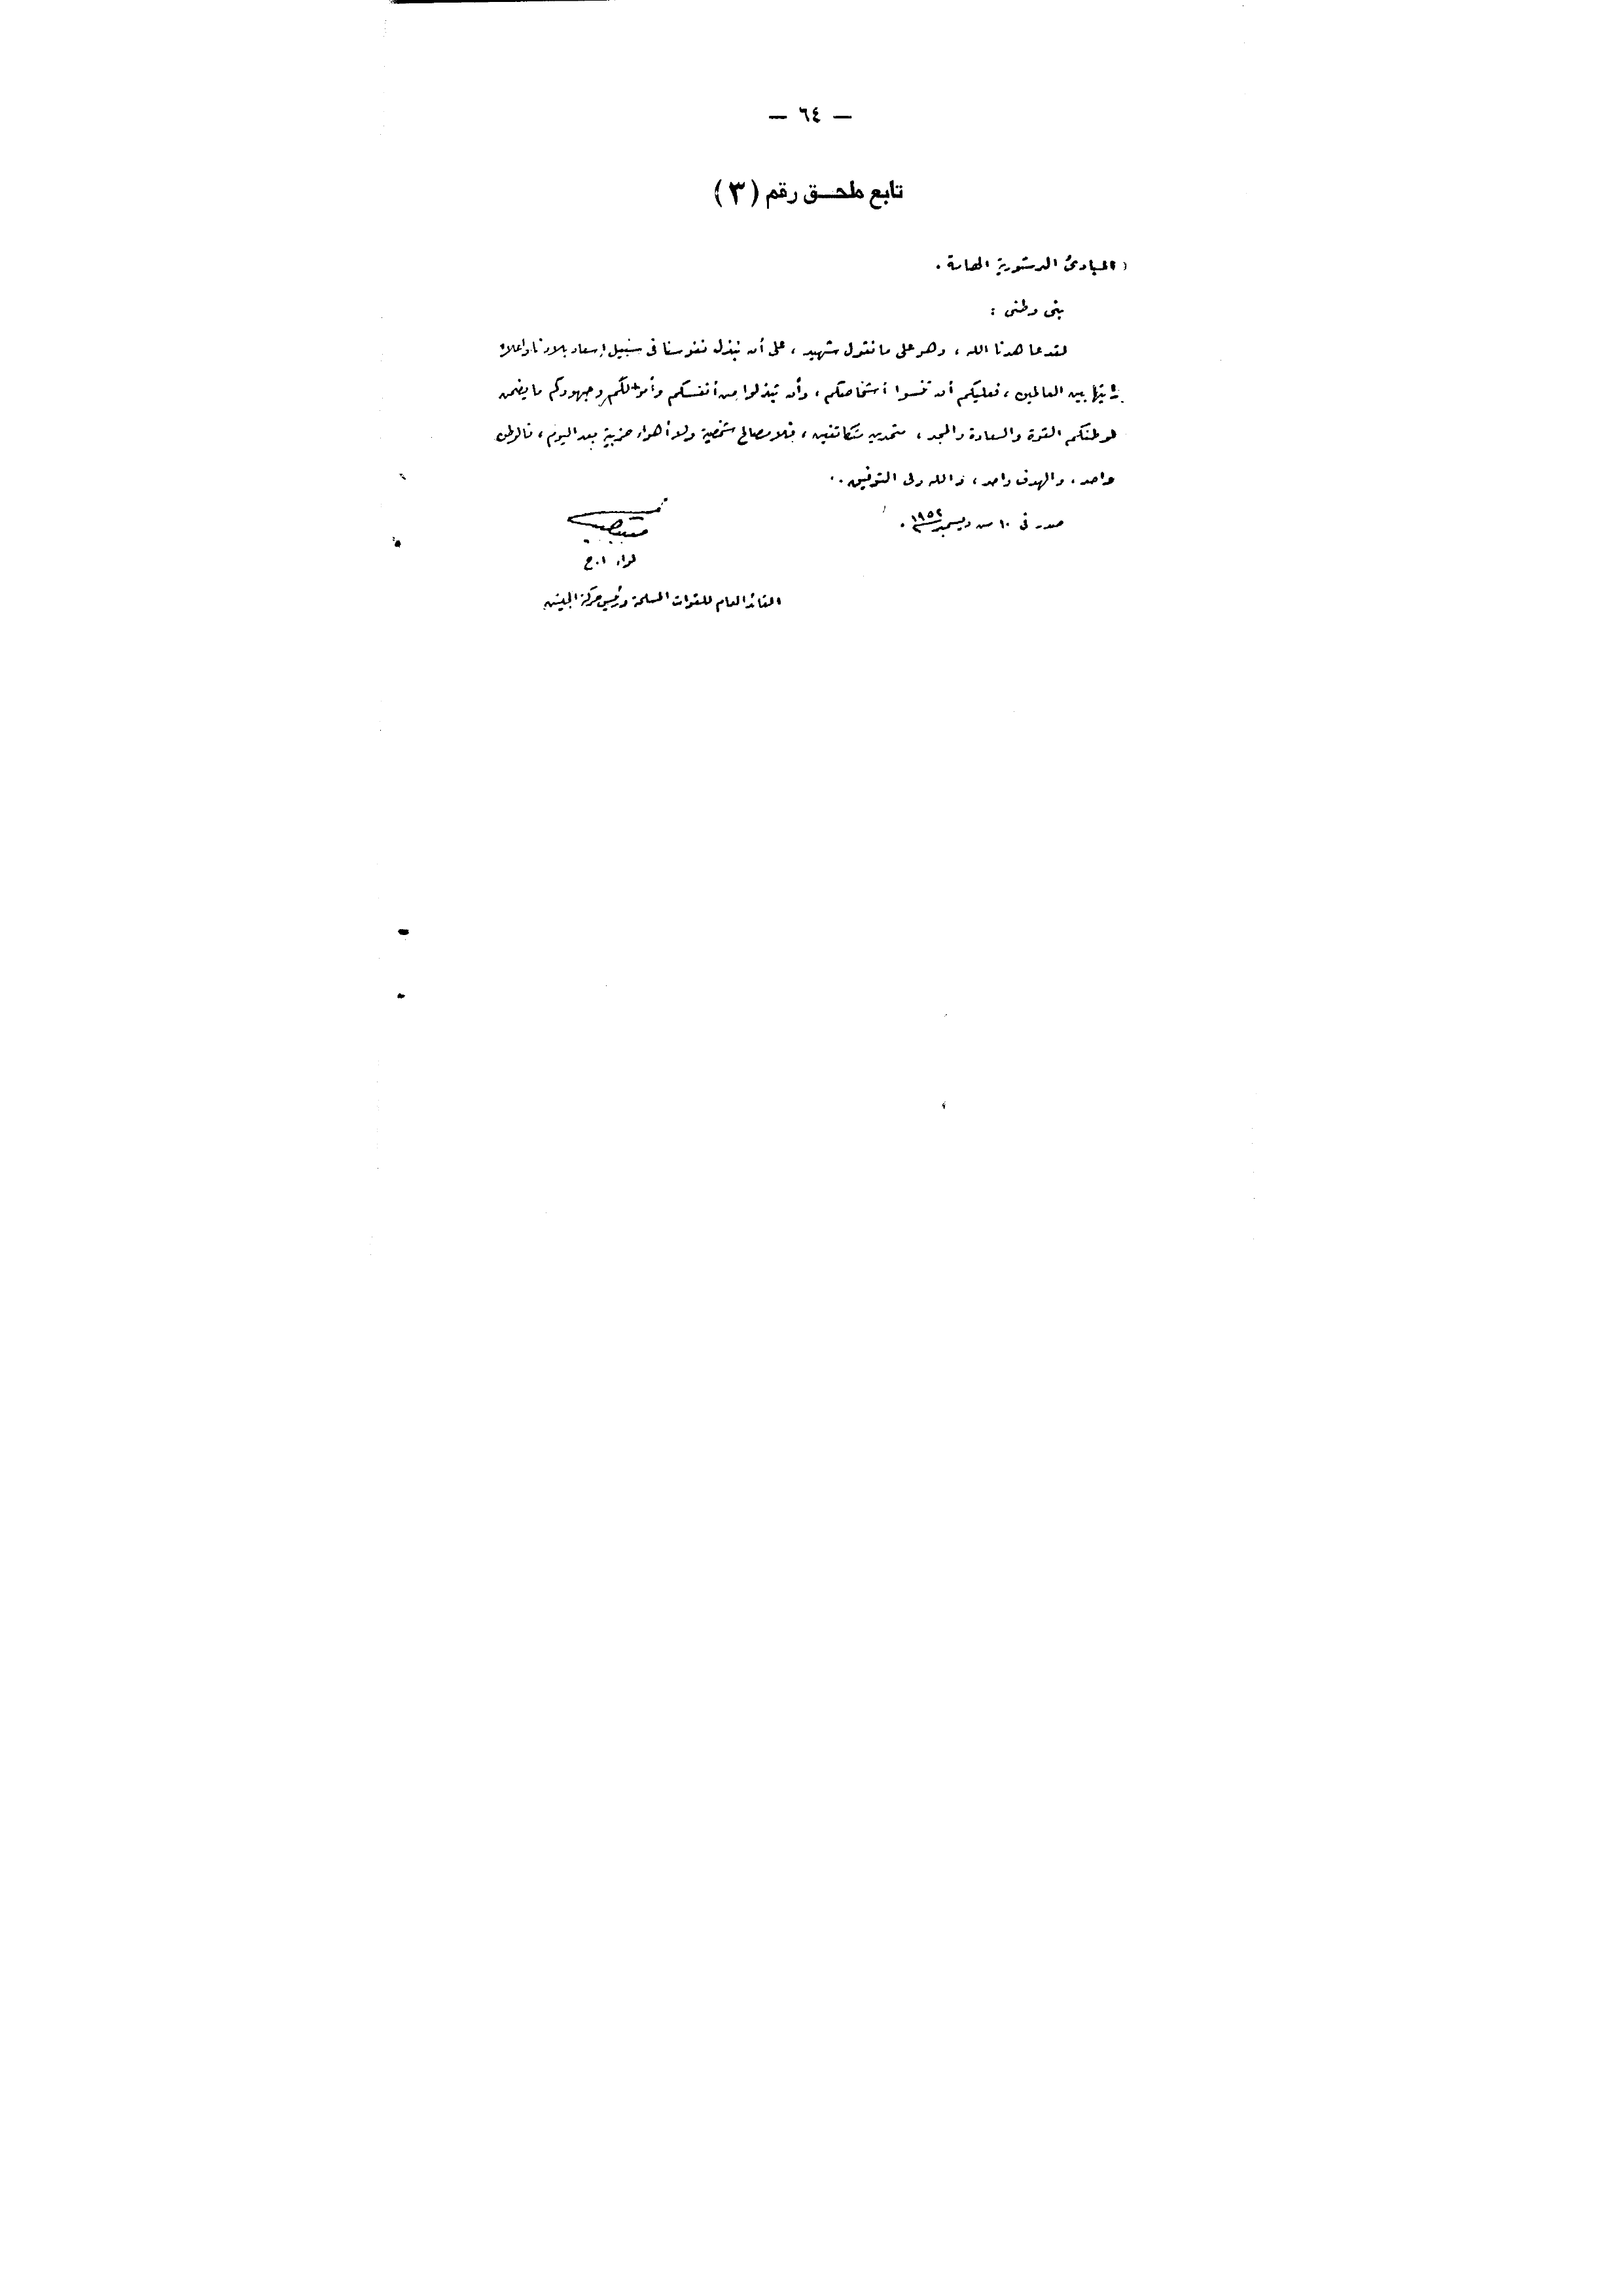 — ٦٤ —
تابع ملحق رقم (٣)
المبادئ الدستورية الهامة .
بنى وطنى :
لقد عاهدنا الله ، وهو على ما نقول شهيد ، على أن نبذل نفوسنا فى سبيل إسعاد بلادنا وإعلاء
رايتها بين العالمين ، فعليكم أن تنسوا أشخاصكم ، وأن تبذلوا من أنفسكم وأموالكم وجهودكم ما يضمن
لوطنكم القوة والسعادة والمجد ، متحدين متكاتفين ، فلا مصالح شخصية ولا أهواء حزبية بعد اليوم ، فالوطن
واحد ، والهدف واحد ، والله ولى التوفيق ..
صدر فى ١٠ من ديسمبر ١٩٥٢ .
لواء ا.ح
القائد العام للقوات المسلحة ورئيس حركة الجيش